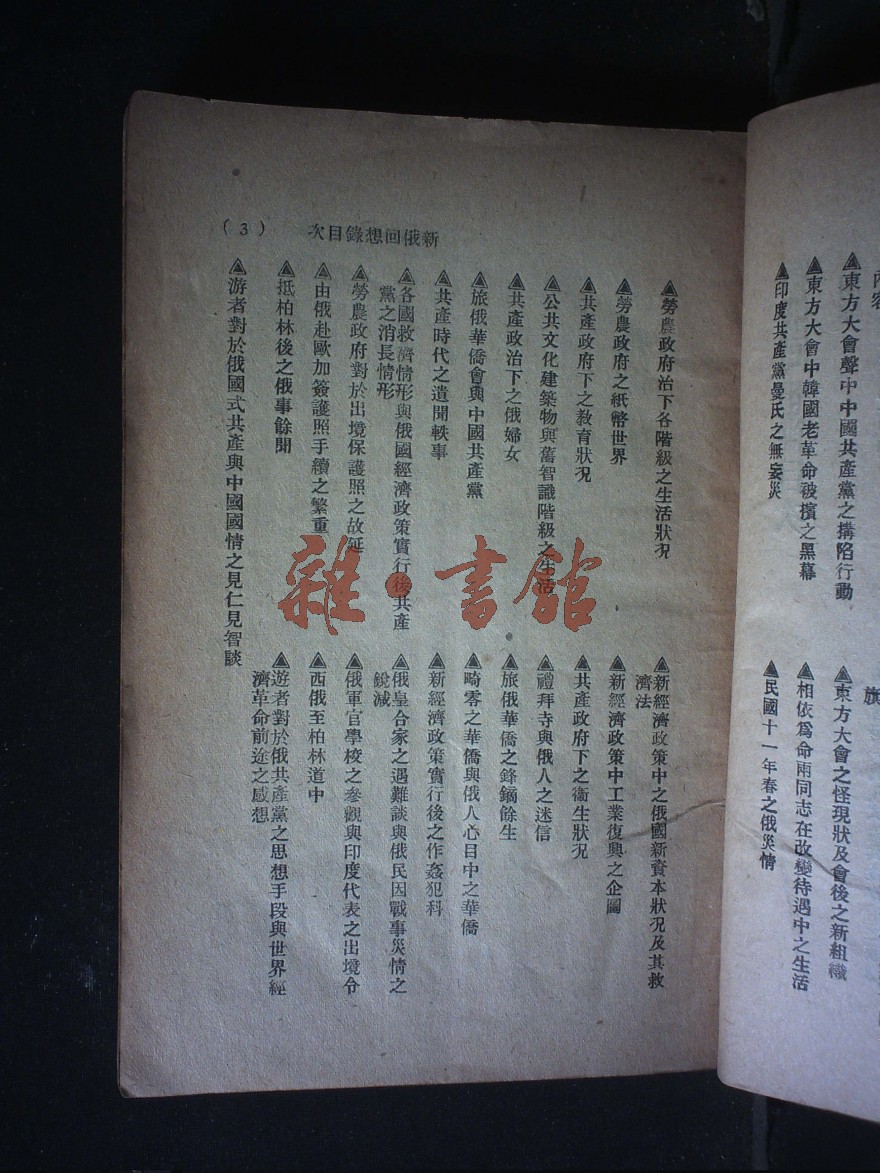 內容
▲東方大會聲中中國共產黨之搆陷行動
▲東方大會中韓國老革命被擯之黑幕
▲印度共產黨曼氏之無妄災
旗
▲東方大會之怪現狀及會後之新組織
▲相依爲命兩同志在改變待遇中之生活
▲民國十一年春之俄災情
新俄回想錄目次
(3)
▲勞農政府治下各階級之生活狀況
▲勞農政府之紙幣世界
▲共產政府下之教育狀況
▲公共文化建築物與舊智識階級之生活
▲共產政治下之俄婦女
▲旅俄華僑會與中國共產黨
▲共產時代之遺聞軼事
▲各國救濟情形與俄國經濟政策實行後共產
黨之消長情形
▲勞農政府對於出境保護照之故延
▲由俄赴歐加簽護照手續之繁重
▲抵柏林後之俄事餘聞
▲游者對於俄國式共產與中國國情之見仁見智談
▲新經濟政策中之俄國新資本狀況及其救
濟法
▲新經濟政策中工業復興之企圖
▲共產政府下之衞生狀況
▲禮拜寺與俄人之迷信
▲旅俄華僑之鋒鏑餘生
▲畸零之華僑與俄人心目中之華僑
▲新經濟政策實行後之作姦犯科
▲俄皇合家之遇難談與俄民因戰事災情之
銳減
▲俄軍官學校之參觀與印度代表之出境令
▲西俄至柏林道中
▲遊者對於俄共產黨之思想手段與世界經
濟革命前途之感想
雜·書館